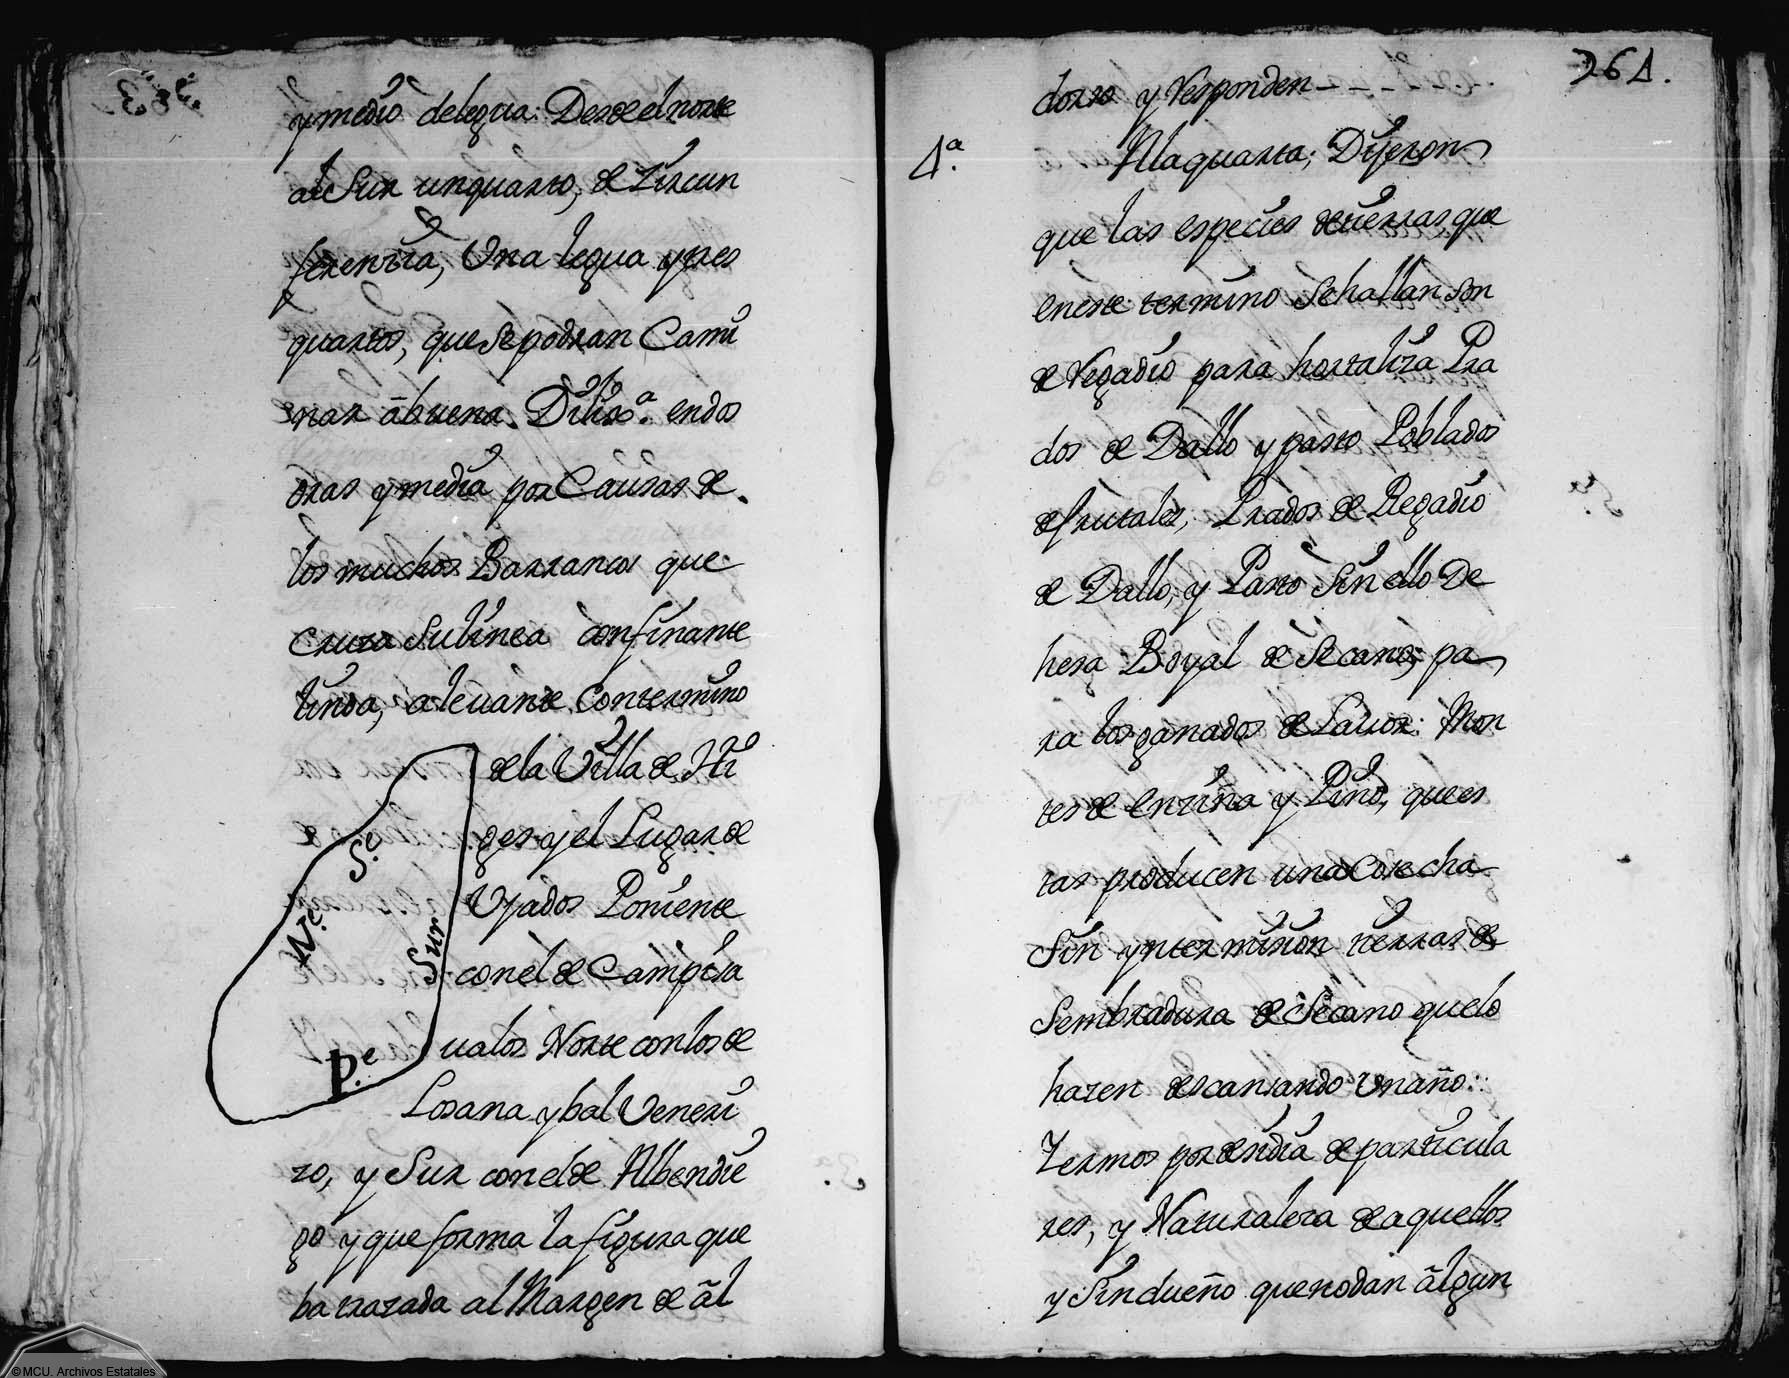 y medio de legua: Desde el norte
al Sur un quarto, de Zircun
ferenzia, Una legua y tres
quartos, que se podran Cami
nar â buena Dilixª. en dos
oras y media por Causas de
los muchos Barrancos que
cruza su linea confinante
linda, a levante Con termino
de la Villa de Hi
ges y el Lugar de
Ujados Poniente
con el de Campisa
ualos Norte con los de
Losana y bal Veneri
zo, y Sur con el de Albendie
go y que forma la figura que
ba trazada al Margen de âl
Nᵉ.
Sᵉ.
Sur
Pᵉ.
264.
dorso y Responden
4ª. A la quarta; Dijeron
que las especies de tierras que
en este termino Se hallan son
de Regadio para hortaliza Pra
dos de Dallo y pasto Poblados
de frutales, Prados de Regadio
de Dallo, y Pasto Sin ello De
hesa Boyal de Secano, pa
ra los ganados de Lavor: Mon
tes de enzina y Pino, que es
tas producen una Cosecha
Sin yntermision tierras de
Sembradura de Secano que lo
hazen descansando Un año:
Yermos por desidia de particula
res, y Naturaleza de aquellos
y Sin dueño que no dan âlgun
3ª.
5ª.
©MCU. Archivos Estatales